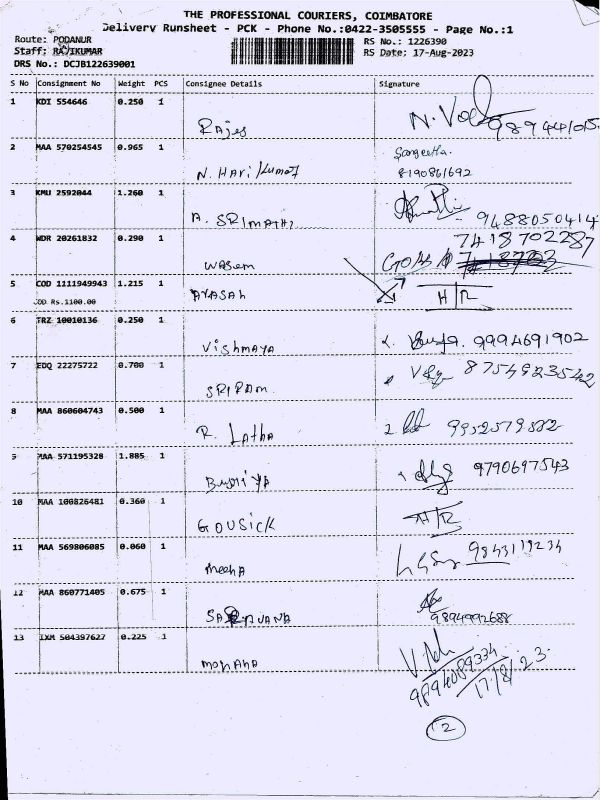 THE PROFESSIONAL COURIERS, COIMBATORE
Delivery Runsheet - PCK - Phone No.:0422-3505555 - Page No.:1
Route: PODANUR
RS No.: 1226390
Staff: RAJIKUMAR
RS Date: 17-Aug-2023
DRS No.: DCJB122639001
S No Consignment No Weight PCS Consignee Details Signature
1 KDI 554646 0.250 1
Rajes
2 MAA 570254545 0.965 1 Sangeetha.
N. Hari Kumar 8190861692
3 KMU 2592044 1.260 1
A. SRIMATHI 9488050414
4 WDR 20261832 0.290 1 7418702287
Wasem
5 COD 1111949943 1.215 1
AYASAH H/R
COD Rs.1100.00
6 TRZ 10010136 0.250 1
Vishmaya 9994691902
7 EDQ 22275722 0.700 1
SRIRAM 8754923542
8 MAA 860604743 0.500 1
R. Latha 9952579882
9 MAA 571195328 1.885 1
9790697543
10 MAA 100826481 0.360 1
GOUSICK H/R
11 MAA 569806085 0.060 1
Meena 9843119234
12 MAA 860771405 0.675 1
9894992688
13 IXM 504397627 0.225 1
Mohana
9894089334
17/8/23.
12